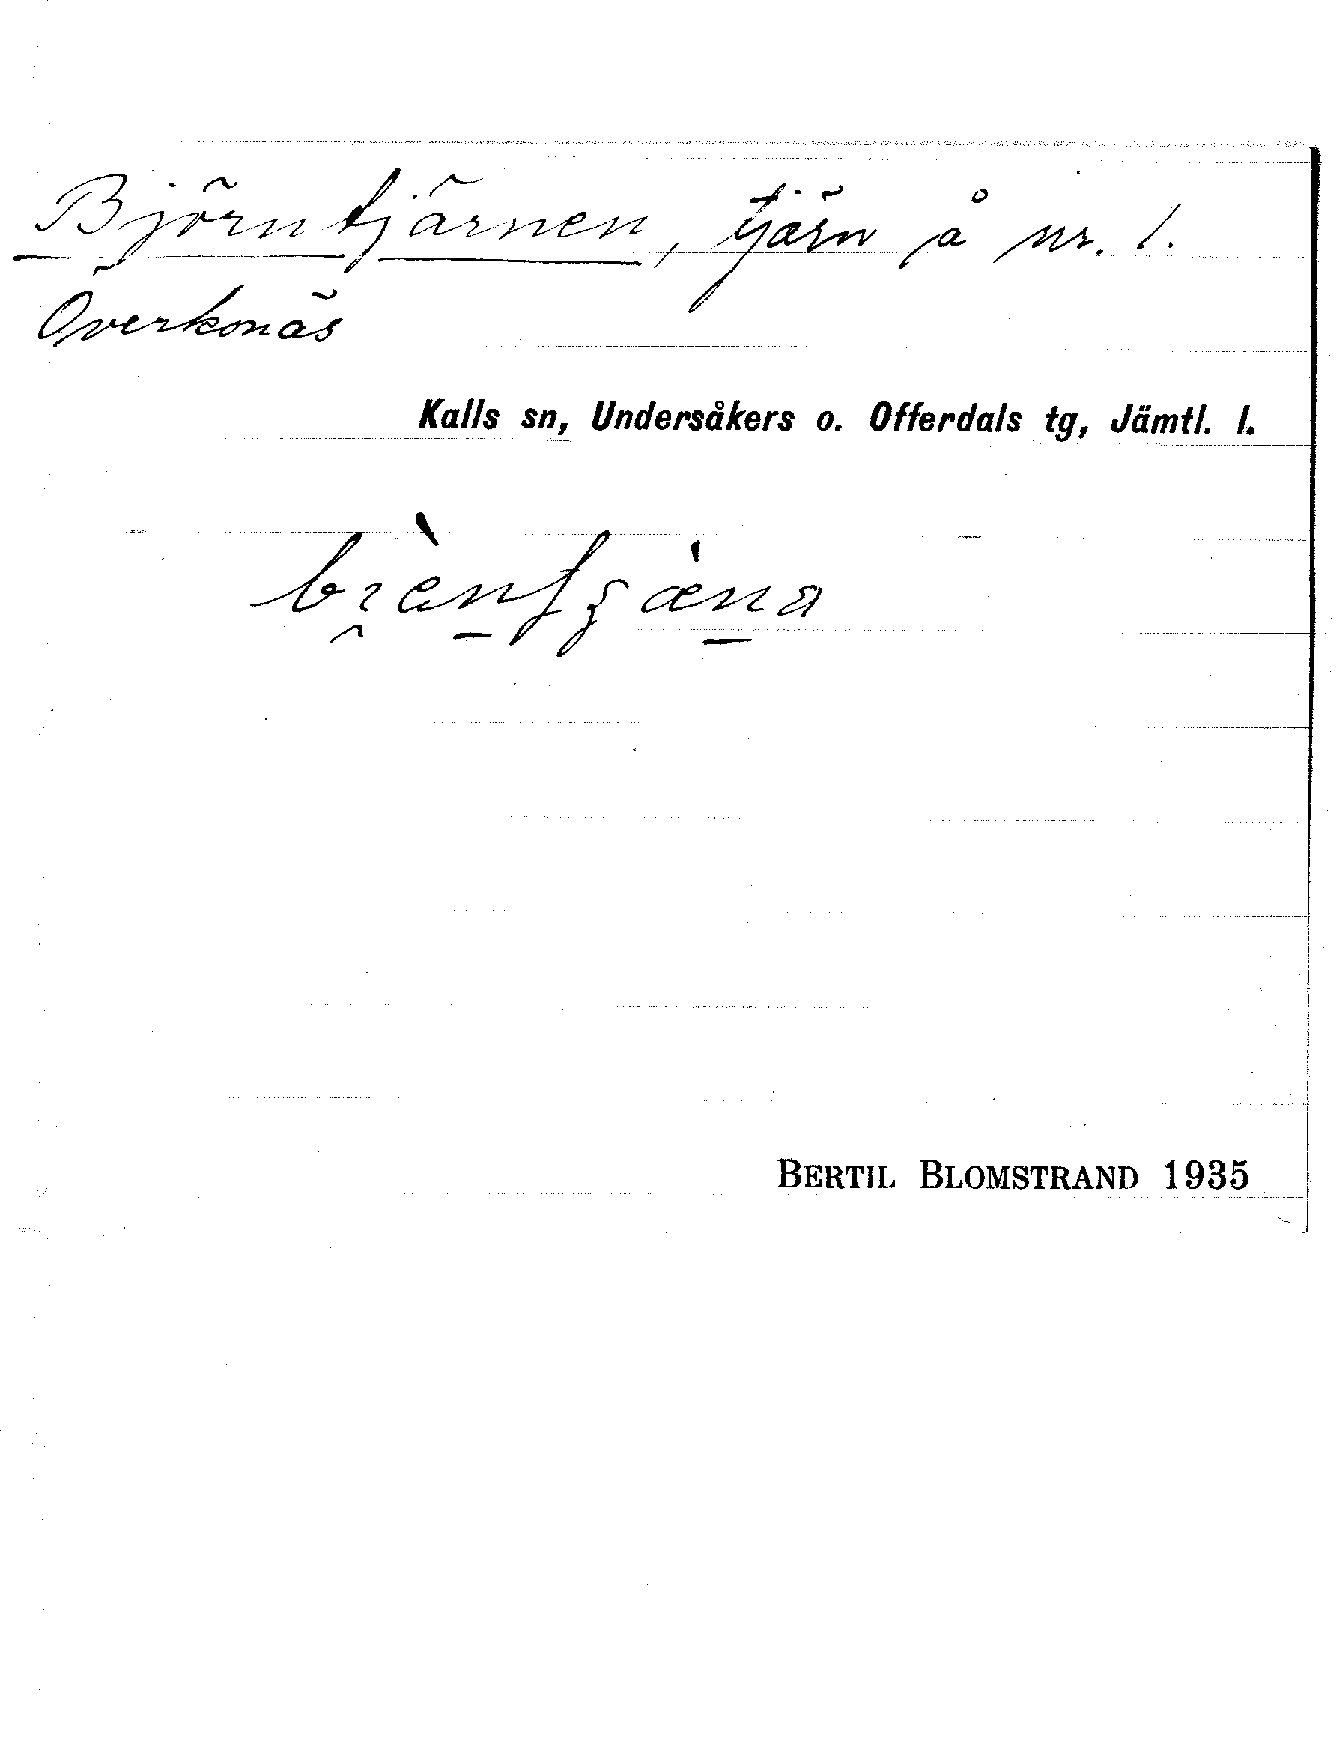 Björntjärnen, tjärn å nr. 1.
Överkonäs
Kalls sn, Undersåkers o. Offerdals tg, Jämtl. l.
BERTIL BLOMSTRAND 1935